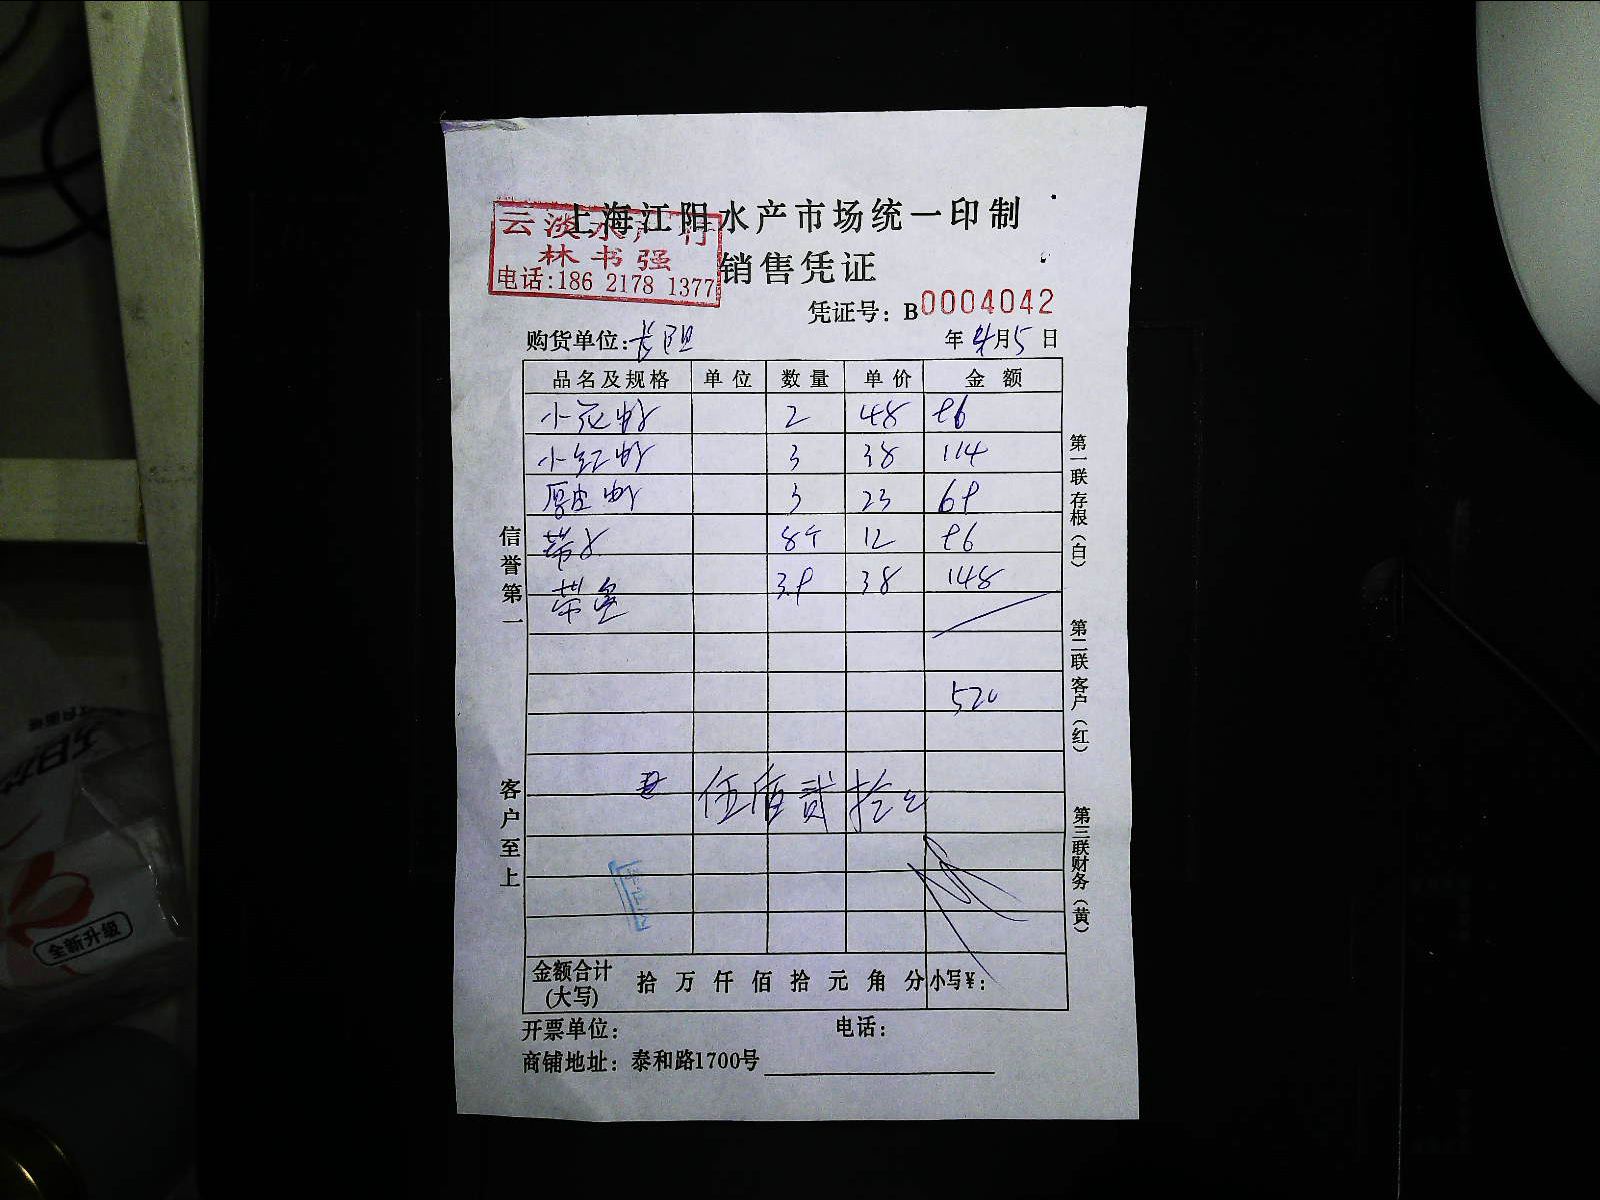 上海江阳水产市场统一印制
云淡水产行
林书强
电话:186 2178 1377
销售凭证
凭证号: B0004042
购货单位:
年 4月5日
品名及规格 单位 数量 单价 金额
小 2 48 96
小红 3 38 114
厚皮 3 23 69
带 8 12 96
带鱼 3.9 38 148
520
伍佰贰拾元
金额合计(大写) 拾 万 仟 佰 拾 元 角 分 小写¥:
开票单位: 电话:
商铺地址: 泰和路1700号
信誉第一
客户至上
第一联存根(白)
第二联客户(红)
第三联财务(黄)
全新升级